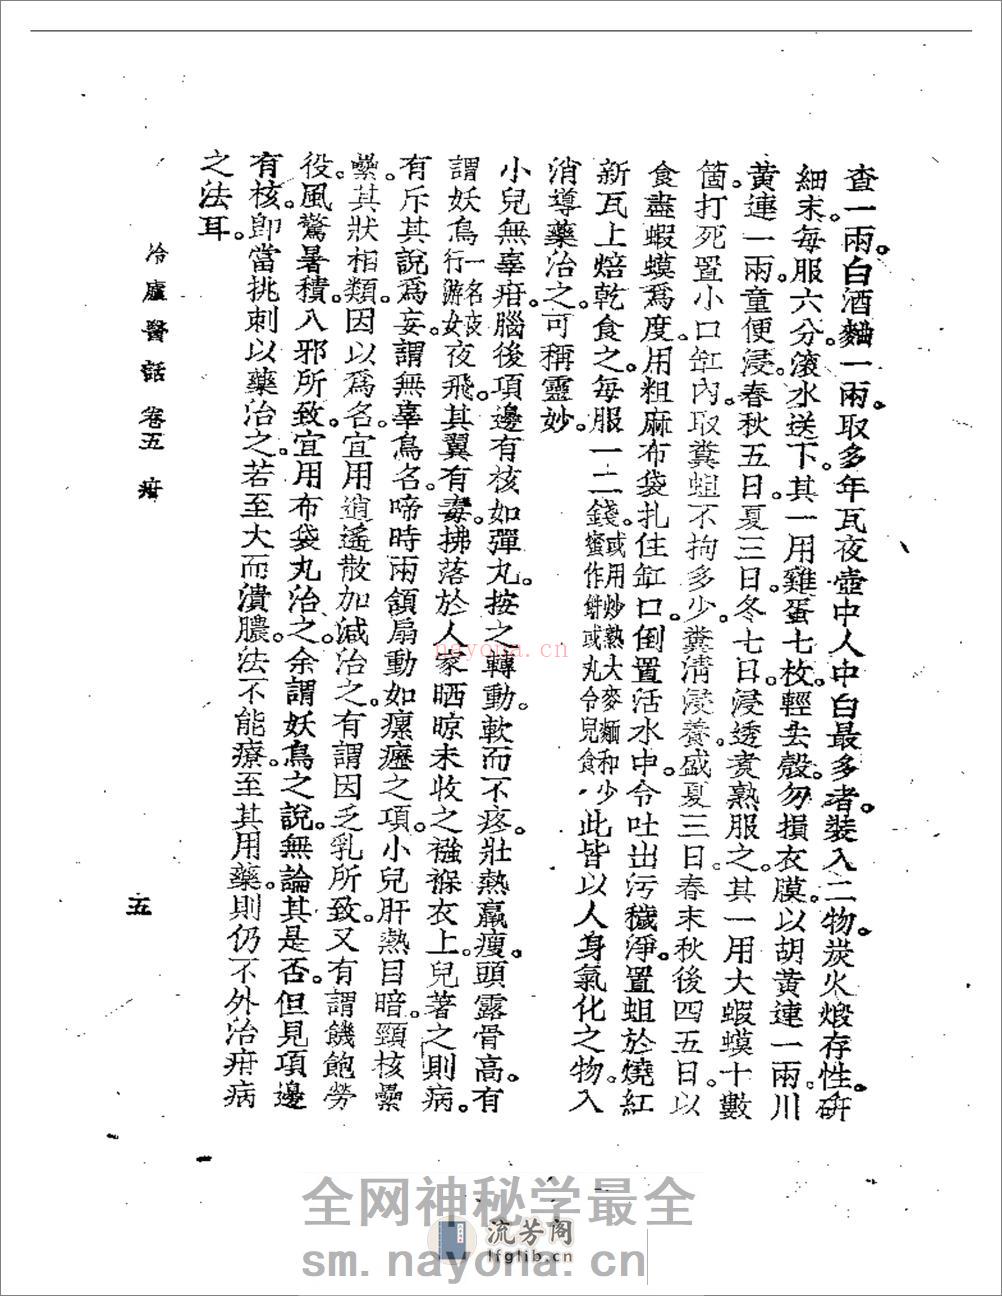 查一兩。白酒麯一兩。取多年瓦夜壺中人中白最多者。裝入二物。炭火煅存性。研
細末。每服六分。滾水送下。其一用雞蛋七枚。輕去殼。勿損衣膜。以胡黃連一兩。川
黃連一兩。童便浸。春秋五日。夏三日。冬七日。浸透煑熟服之。其一用大蝦蟆十數
箇。打死置小口缸內。取糞蛆不拘多少。糞清浸養。盛夏三日。春末秋後四五日。以
食盡蝦蟆爲度。用粗麻布袋扎住缸口。倒置活水中。令吐出污穢淨。置蛆於燒紅
新瓦上焙乾食之。每服一二錢。或用炒熟大麥麵和少蜜作餅或丸令兒食。此皆以人身氣化之物。入
消導藥治之。可稱靈妙。
小兒無辜疳。腦後項邊有核如彈丸。按之轉動。軟而不疼。壯熱羸瘦。頭露骨高。有
謂妖鳥一名夜行游女夜飛。其翼有毒。拂落於人家晒晾未收之襁褓衣上。兒著之則病。
有斥其說爲妄。謂無辜鳥名。啼時兩頷扇動如瘰癧之項。小兒肝熱目暗。頸核纍
纍。其狀相類。因以爲名。宜用逍遙散加減治之。有謂因乏乳所致。又有謂饑飽勞
役。風驚暑積。八邪所致。宜用布袋丸治之。余謂妖鳥之說。無論其是否。但見項邊
有核。卽當挑刺以藥治之。若至大而潰膿。法不能療。至其用藥。則仍不外治疳病
之法耳。
冷廬醫話 卷五 疳
五
nayona.cn
全网神秘学最全
流芳阁
lfglib.cn
sm.nayona.cn